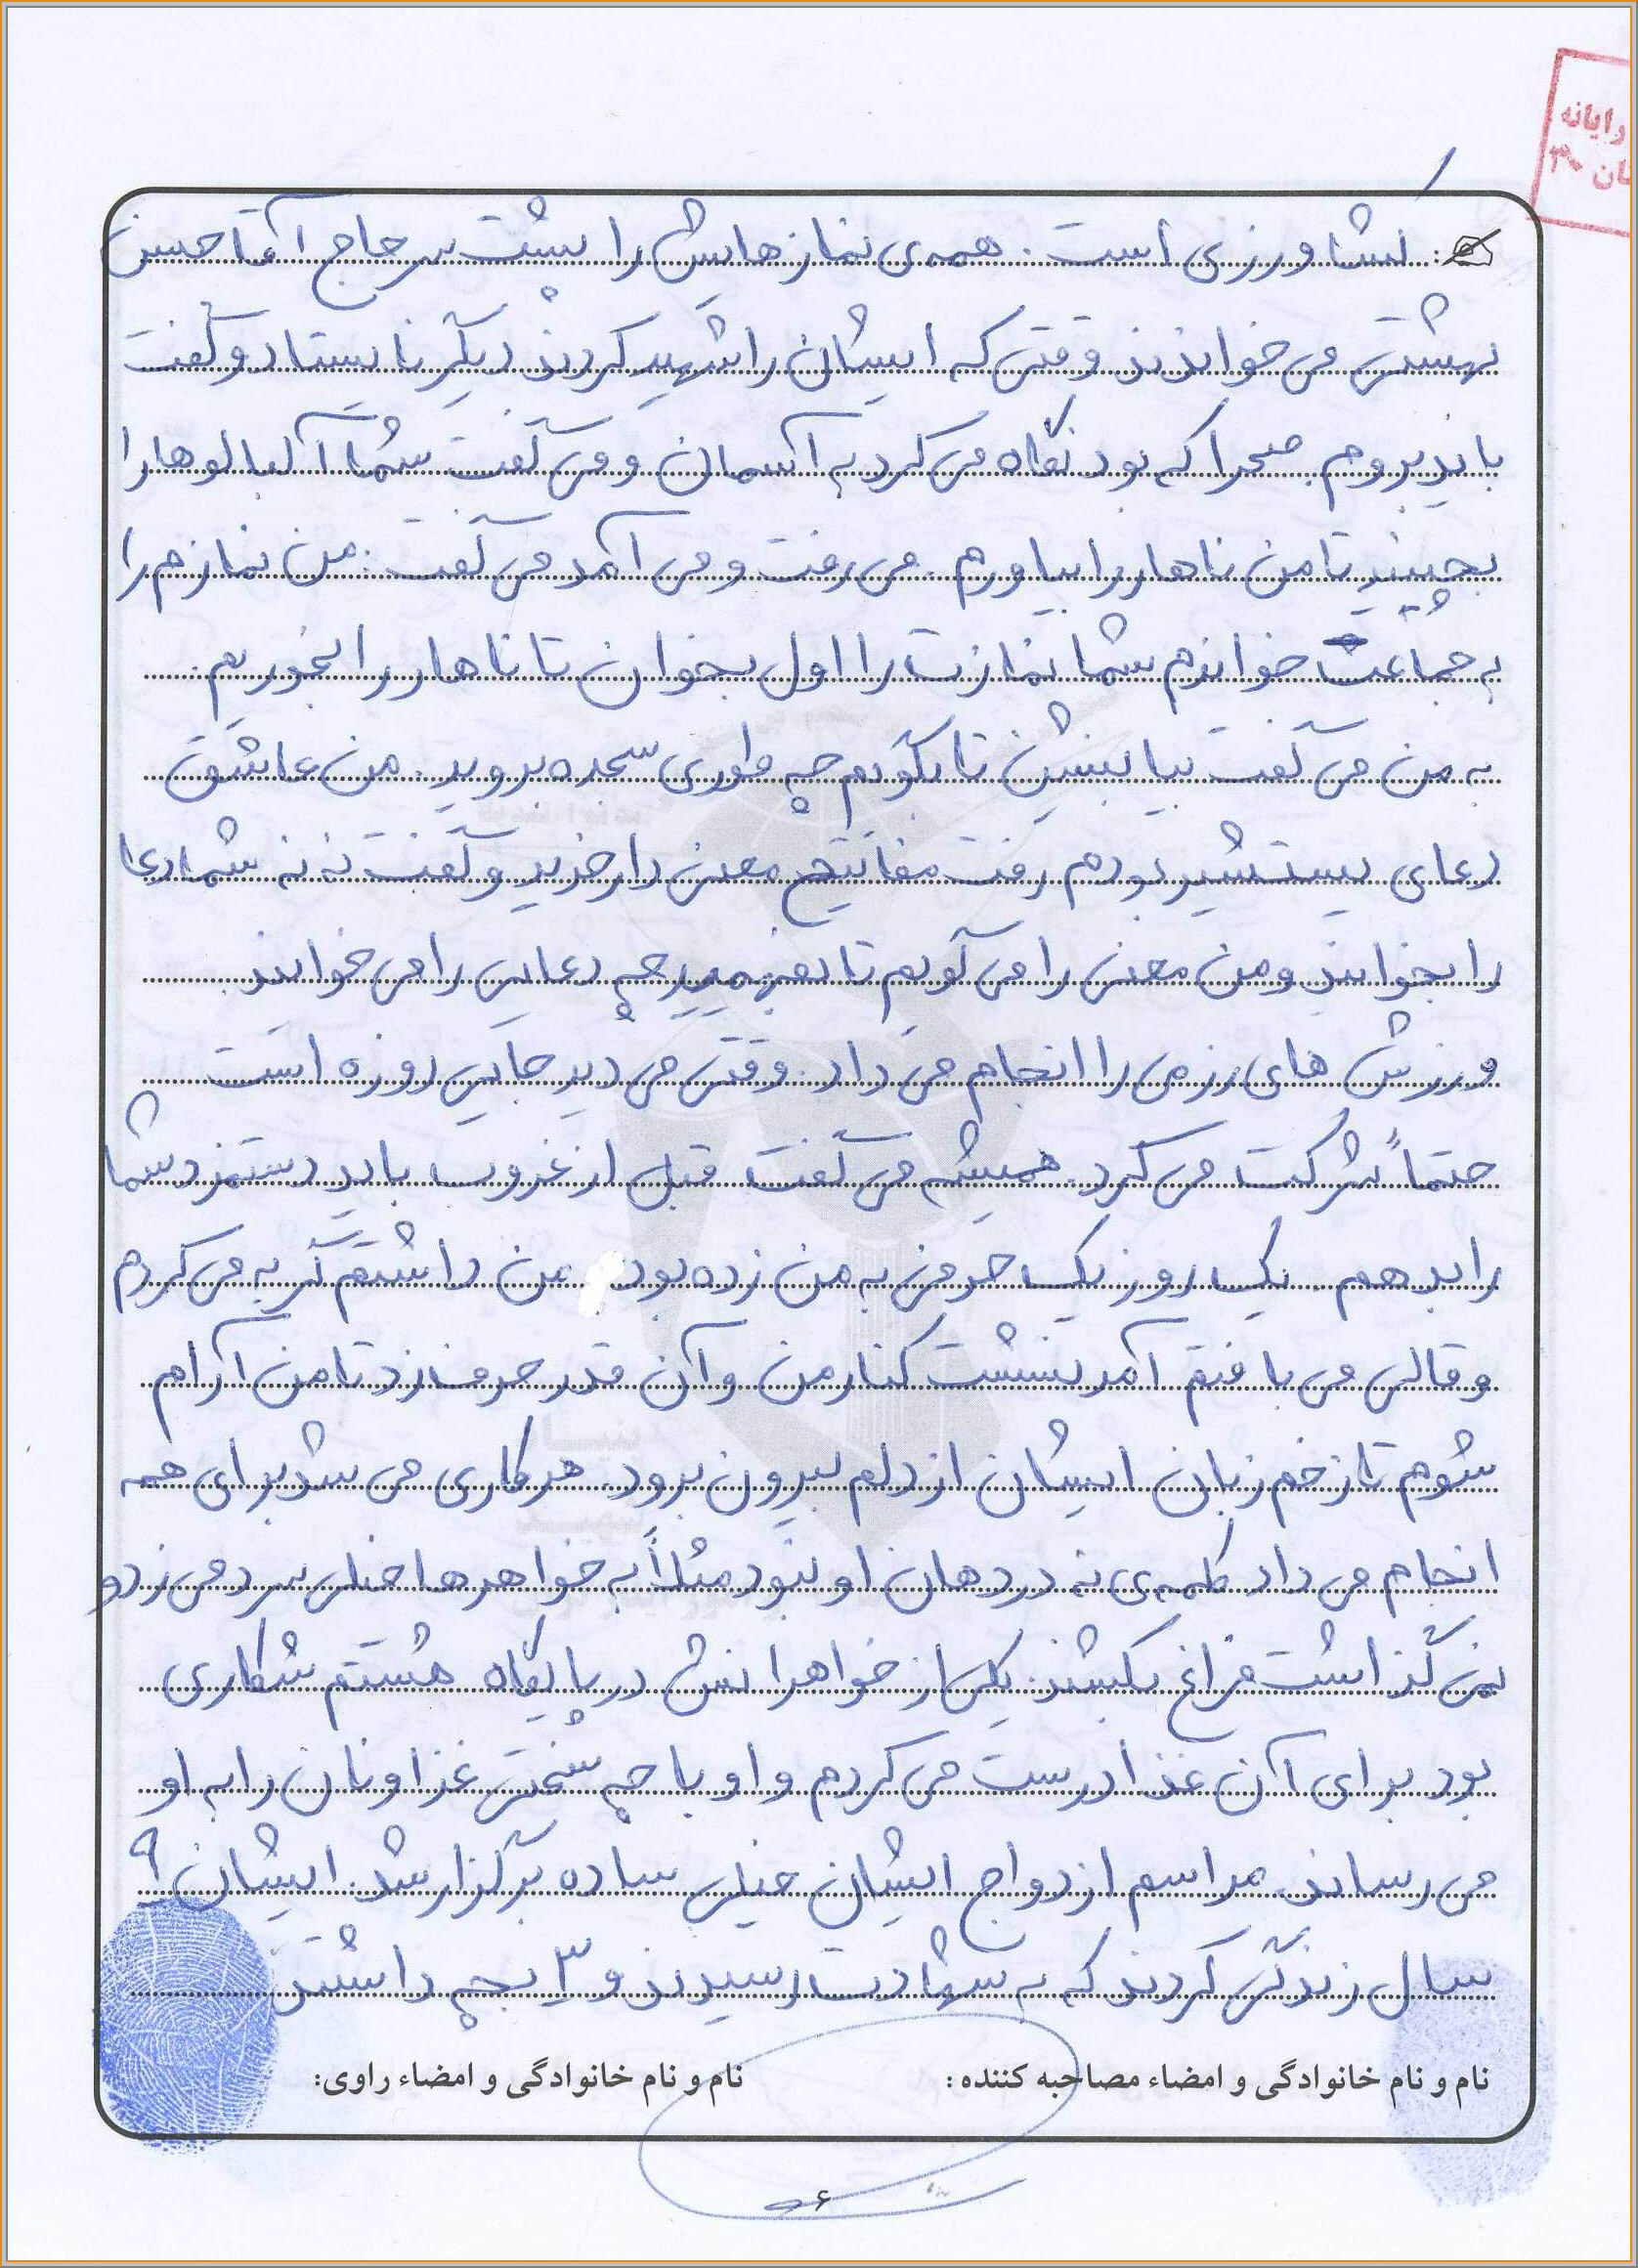 رایانه
۳۰
کشاورزی است. همه‌ی نمازهایش را پشت سر حاج آقا حسن
بهشتی می خواندند وقتی که ایشان را شهید کردند دیگر نایستاد و گفت
باید بروم. صحرا که بود نگاه می کرد به آسمان و می گفت شما آلبالوها را
بچینید تا من ناهار را بیاورم. می رفت و می آمد می گفت: من نمازم را
به جماعت خواندم شما نمازت را اول بخوان تا ناهار را بخوریم.
به من می گفت بیا بنشین تا بگویم چه طوری سجده بروید. من عاشق
دعای یستشیر بودم رفت مفاتیح معنی دار خرید و گفت ننه شما دعا
را بخوانید و من معنی را می گویم تا بفهمید چه دعایی را می خوانید.
ورزش های رزمی را انجام می داد. وقتی می دید جایی روزه است
حتماً شرکت می کرد. همیشه می گفت قبل از غروب باید دستمزد شما
را بدهم. یک روز یک حرفی به من زده بود من داشتم گریه می کردم
و قالی می بافتم آمد نشست کنار من و آن قدر حرف زد تا من آرام
شوم تا زخم زبان ایشان از دلم بیرون برود. هر کاری می شد برای همه
انجام می داد کلمه‌ی نه در دهان او نبود مثلاً به خواهرها خیلی سرد می زد و
نمی گذاشت فراغ بکشند. یکی از خواهرانش در پایگاه هشتم شکاری
بود برای آن غذا درست می کردم و او با چه سختی غذا و نان را به او
می رساند. مراسم ازدواج ایشان خیلی ساده برگزار شد. ایشان ۹
سال زندگی کردند که به شهادت رسیدند و ۳ بچه داشتند
نام و نام خانوادگی و امضاء مصاحبه کننده: نام و نام خانوادگی و امضاء راوی:
۶